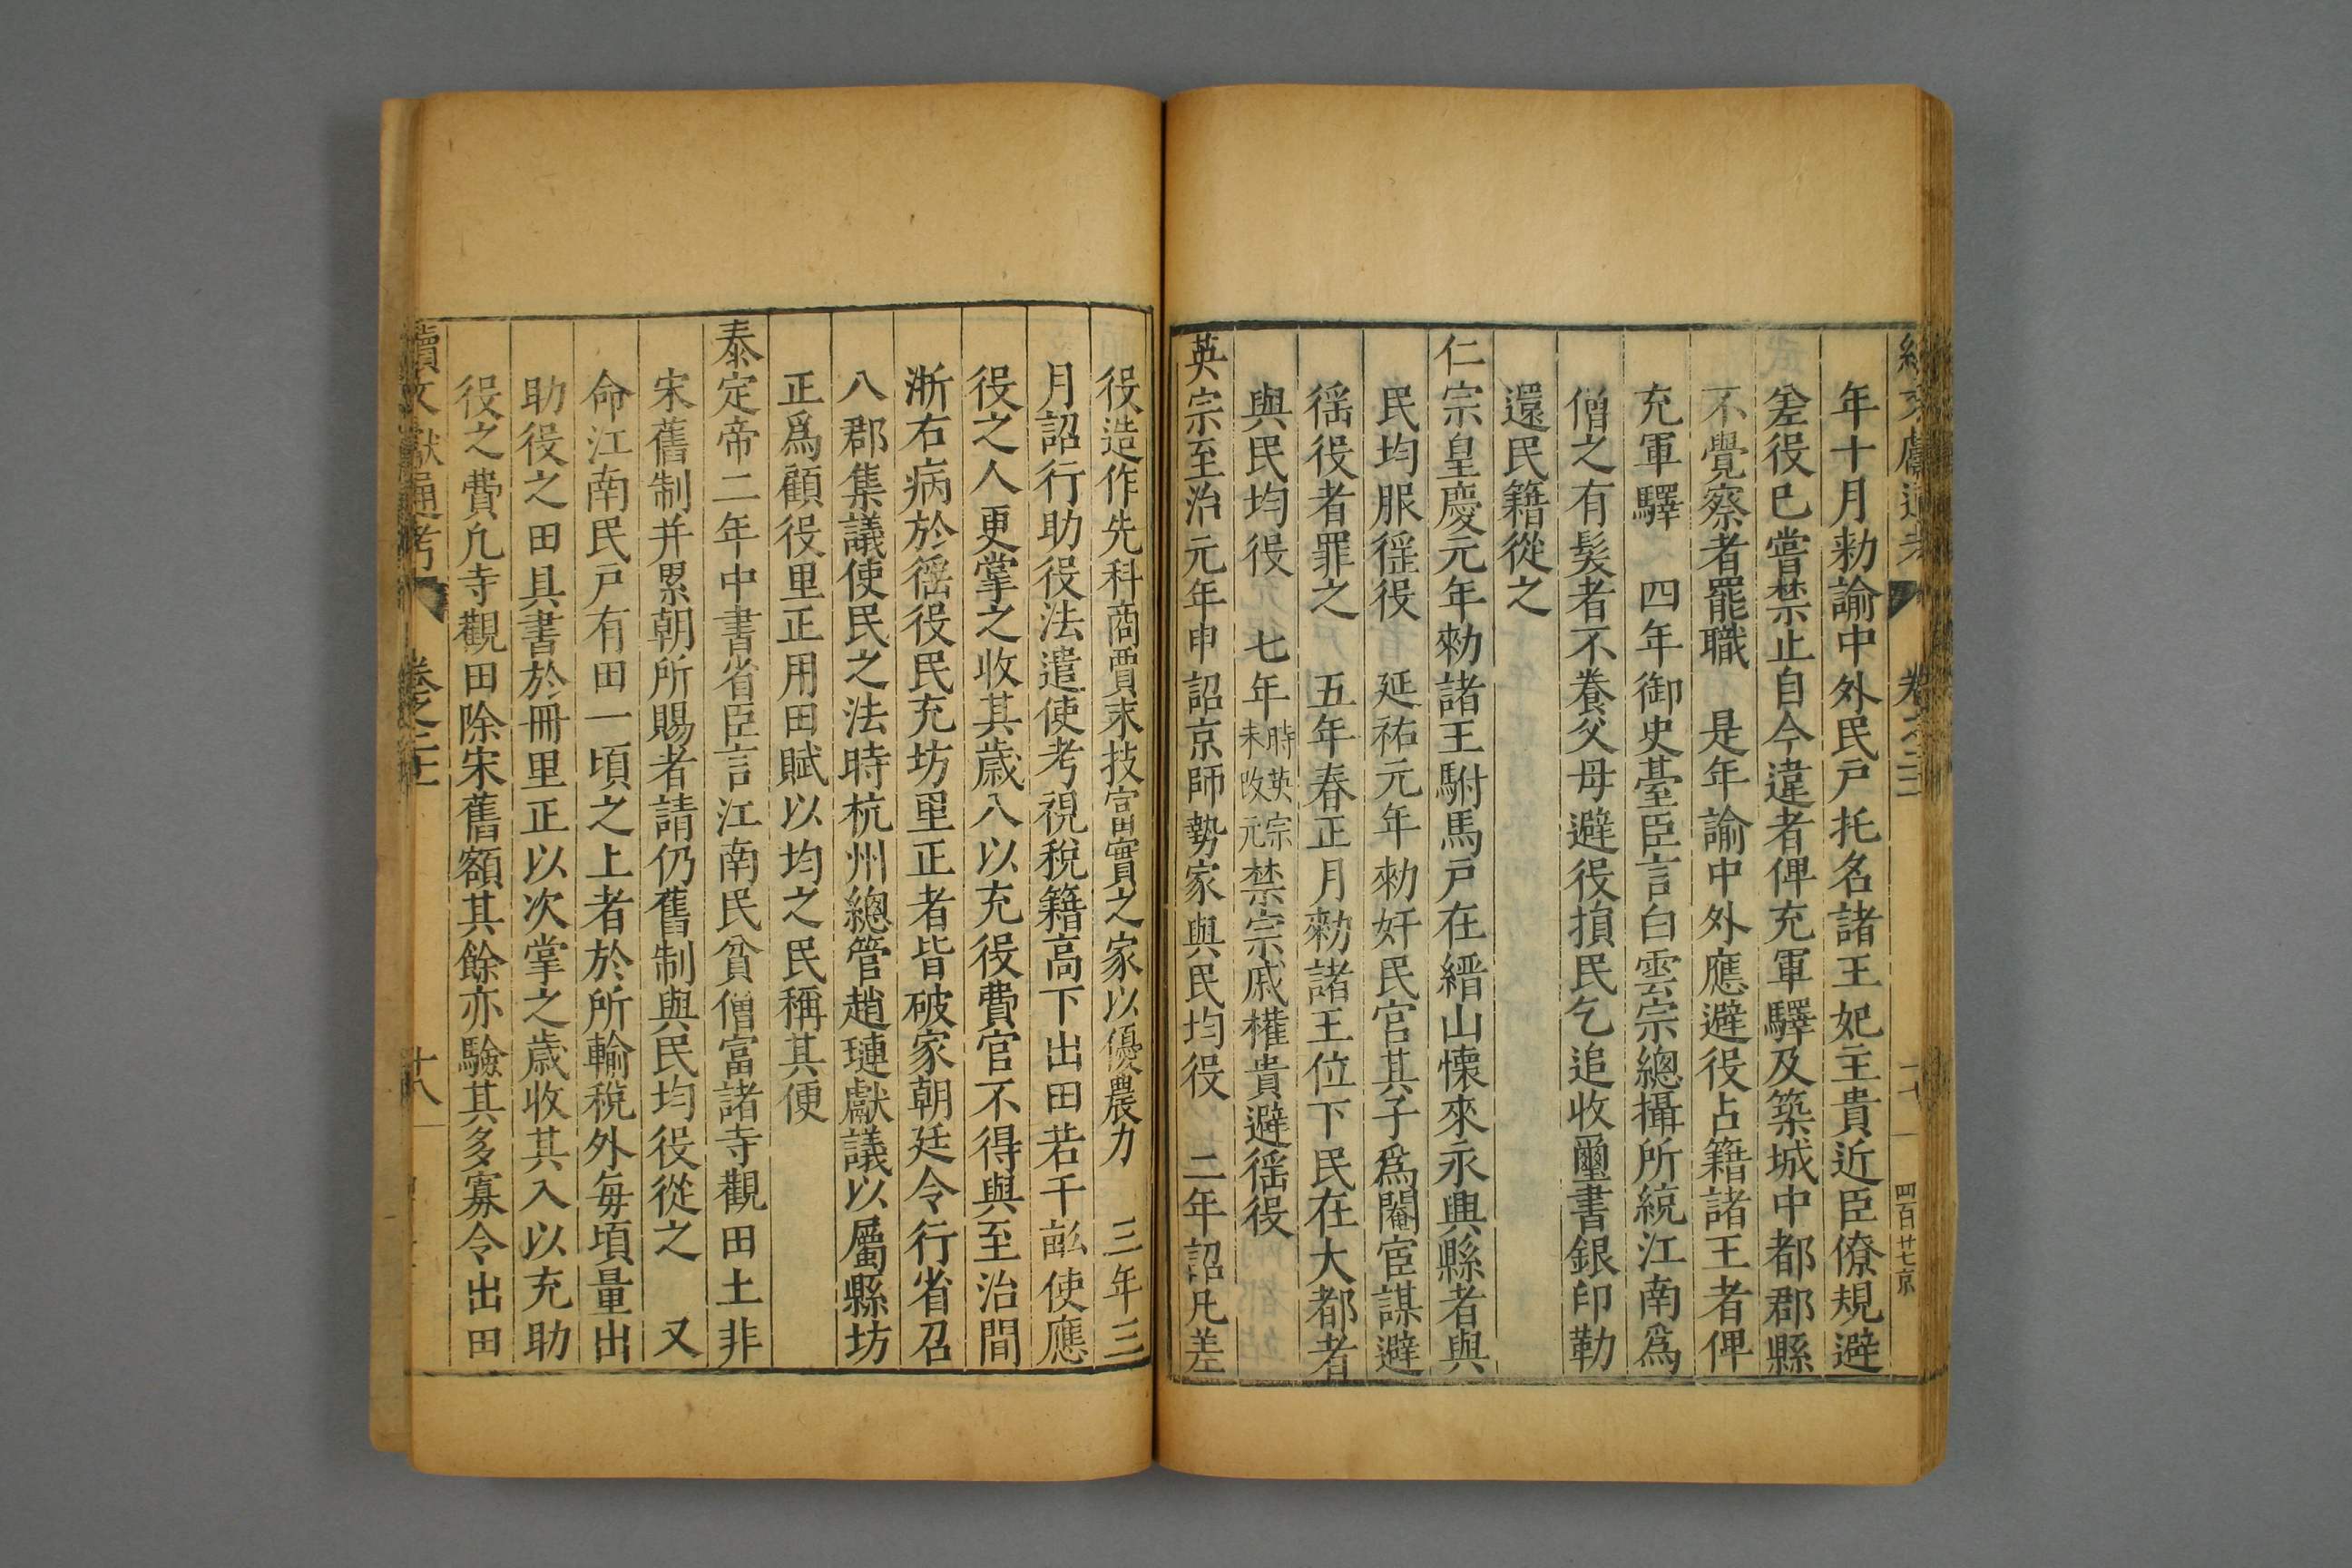 年十月勑諭中外民戶托名諸王妃主貴近臣僚規避
差役巳嘗禁止自今違者俾充軍驛及築城中都郡縣
不覺察者罷職　是年諭中外應避役占籍諸王者俾
充軍驛　四年御史臺臣言白雲宗總攝所統江南爲
僧之有髮者不養父母避役損民乞追收璽書銀印勒
還民籍從之
仁宗皇慶元年勑諸王駙馬戶在縉山懷來永興縣者與
民均服徭役　延祐元年勑奸民宫其子爲閹宦謀避
徭役者罪之　五年春正月勑諸王位下民在大都者
與民均役　七年時英宗未改元禁宗戚權貴避徭役
英宗至治元年申詔京師勢家與民均役　二年詔凡差
役造作先科商賈末技富實之家以優農力　三年三
月詔行助役法遣使考視稅籍高下出田若干畝使應
役之人更掌之收其歲入以充役費官不得與至治間
浙右病於徭役民充坊里正者皆破家朝廷令行省召
八郡集議使民之法時杭州總管趙璉獻議以屬縣坊
正爲顧役里正用田賦以均之民稱其便
泰定帝二年中書省臣言江南民貧僧富諸寺觀田土非
宋舊制并累朝所賜者請仍舊制與民均役從之　又
命江南民戶有田一頃之上者於所輸稅外每頃量出
助役之田具書於冊里正以次掌之歲收其入以充助
役之費凡寺觀田除宋舊額其餘亦驗其多寡令出田
續文獻通考　卷之　十八